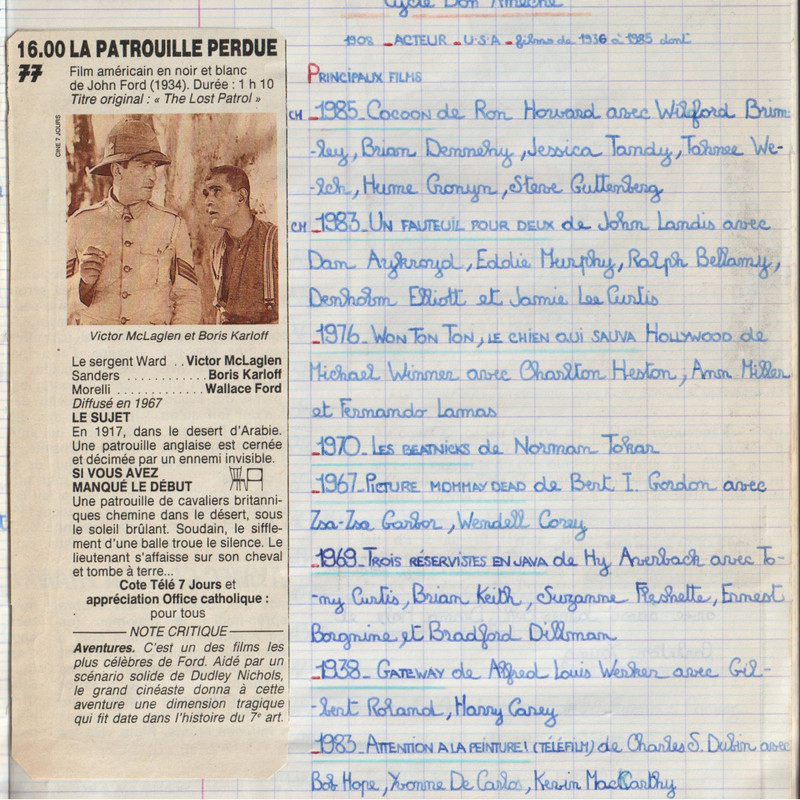 16.00 LA PATROUILLE PERDUE
77
Film américain en noir et blanc
de John Ford (1934). Durée : 1 h 10
Titre original : « The Lost Patrol »
CINE 7 JOURS
Victor McLaglen et Boris Karloff
Le sergent Ward . . Victor McLaglen
Sanders . . . . . . . . . . . . Boris Karloff
Morelli . . . . . . . . . . . . . Wallace Ford
Diffusé en 1967
LE SUJET
En 1917, dans le desert d'Arabie.
Une patrouille anglaise est cernée
et décimée par un ennemi invisible.
SI VOUS AVEZ
MANQUÉ LE DÉBUT
Une patrouille de cavaliers britanni-
ques chemine dans le désert, sous
le soleil brûlant. Soudain, le siffle-
ment d'une balle troue le silence. Le
lieutenant s'affaisse sur son cheval
et tombe à terre...
Cote Télé 7 Jours et
appréciation Office catholique :
pour tous
NOTE CRITIQUE
Aventures. C'est un des films les
plus célèbres de Ford. Aidé par un
scénario solide de Dudley Nichols,
le grand cinéaste donna à cette
aventure une dimension tragique
qui fit date dans l'histoire du 7e art.
Cycle Don Ameche
1908 _ ACTEUR _ U.S.A _ films de 1936 à 1985 dont
PRINCIPAUX FILMS
CH _1985_ COCOON de Ron Howard avec Wilford Brim-
-ley, Brian Dennehy, Jessica Tandy, Tahnee We-
-lch, Hume Cronyn, Steve Guttenberg
CH _1983_ UN FAUTEUIL POUR DEUX de John Landis avec
Dam Aykroyd, Eddie Murphy, Ralph Bellamy,
Denholm Elliott et Jamie Lee Curtis
_1976_ WON TON TON, LE CHIEN QUI SAUVA HOLLYWOOD de
Michael Winner avec Charlton Heston, Ann Miller
et Fernando Lamas
_1970_ LES BEATNICKS de Norman Tokar
_1967_ PICTURE MOMMAY DEAD de Bert I. Gordon avec
Zsa-Zsa Garbor, Wendell Corey
_1969_ TROIS RÉSERVISTES EN JAVA de Hy Averback avec To-
-ny Curtis, Brian Keith, Suzanne Pleshette, Ernest
Borgnine et Bradford Dillman
_1938_ GATEWAY de Alfred Louis Werker avec Gil-
-bert Roland, Harry Carey
_1983_ ATTENTION A LA PEINTURE! (TÉLÉFILM) de Charles S. Dubin avec
Bob Hope, Yvonne De Carlo, Kervin MacCarthy